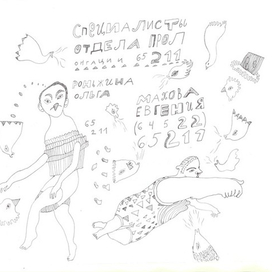 СПЕЦИАЛИСТЫ
ОТДЕЛА ПРОД
65 211
РОМЫЖИНА
ОЛЬГА
65
211
МАХОВА
ЕВГЕНИЯ
(6 4 5 22
65 211